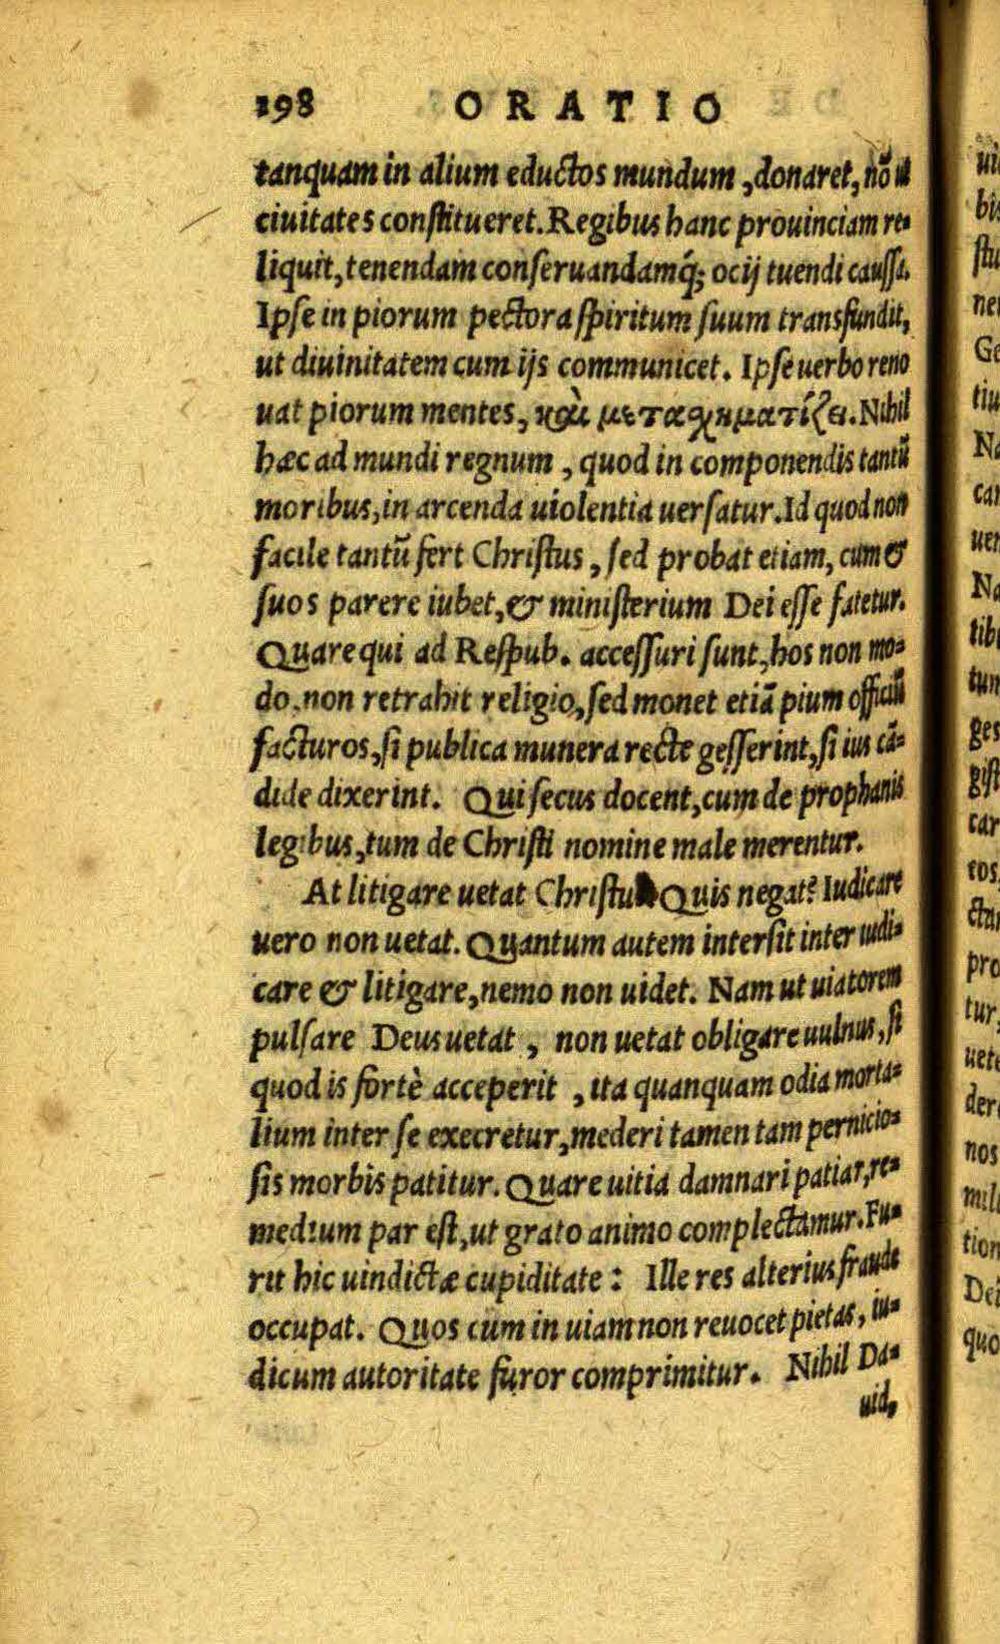 198 ORATIO
tanquam in alium eductos mundum, donaret, nō ut
ciuitates constitueret. Regibus hanc prouinciam re-
liquit, tenendam conseruandamq́; ocij tuendi caussa.
Ipse in piorum pectora spiritum suum transfundit,
ut diuinitatem cum ijs communicet. Ipse uerbo reno
uat piorum mentes, καὶ μεταχηματίζει. Nihil
hæc ad mundi regnum, quod in componendis tantū
moribus, in arcenda uiolentia uersatur. Id quod non
facile tantū fert Christus, sed probat etiam, cum &
suos parere iubet, & ministerium Dei esse fatetur.
Quare qui ad Respub. accessuri sunt, hos non mo-
do, non retrahit religio, sed monet etiā pium officiū
facturos, si publica munera recte gesserint, si ius cā-
dide dixerint. Qui secus docent, cum de prophanis
legibus, tum de Christi nomine male merentur.
At litigare uetat Christus Quis negat? Iudicare
uero non uetat. Quantum autem intersit inter iudi-
care & litigare, nemo non uidet. Nam ut uiatorem
pulsare Deus uetat, non uetat obligare uulnus, si
quod is fortè acceperit, ita quanquam odia morta-
lium inter se execretur, mederi tamen tam pernicio-
sis morbis patitur. Quare uitia damnari patiar, re-
medium par est, ut grato animo complectamur. Fu-
rit hic uindictæ cupiditate: Ille res alterius fraude
occupat. Quos cum in uiam non reuocet pietas, iu-
dicum autoritate furor comprimitur. Nihil Da-
uid,